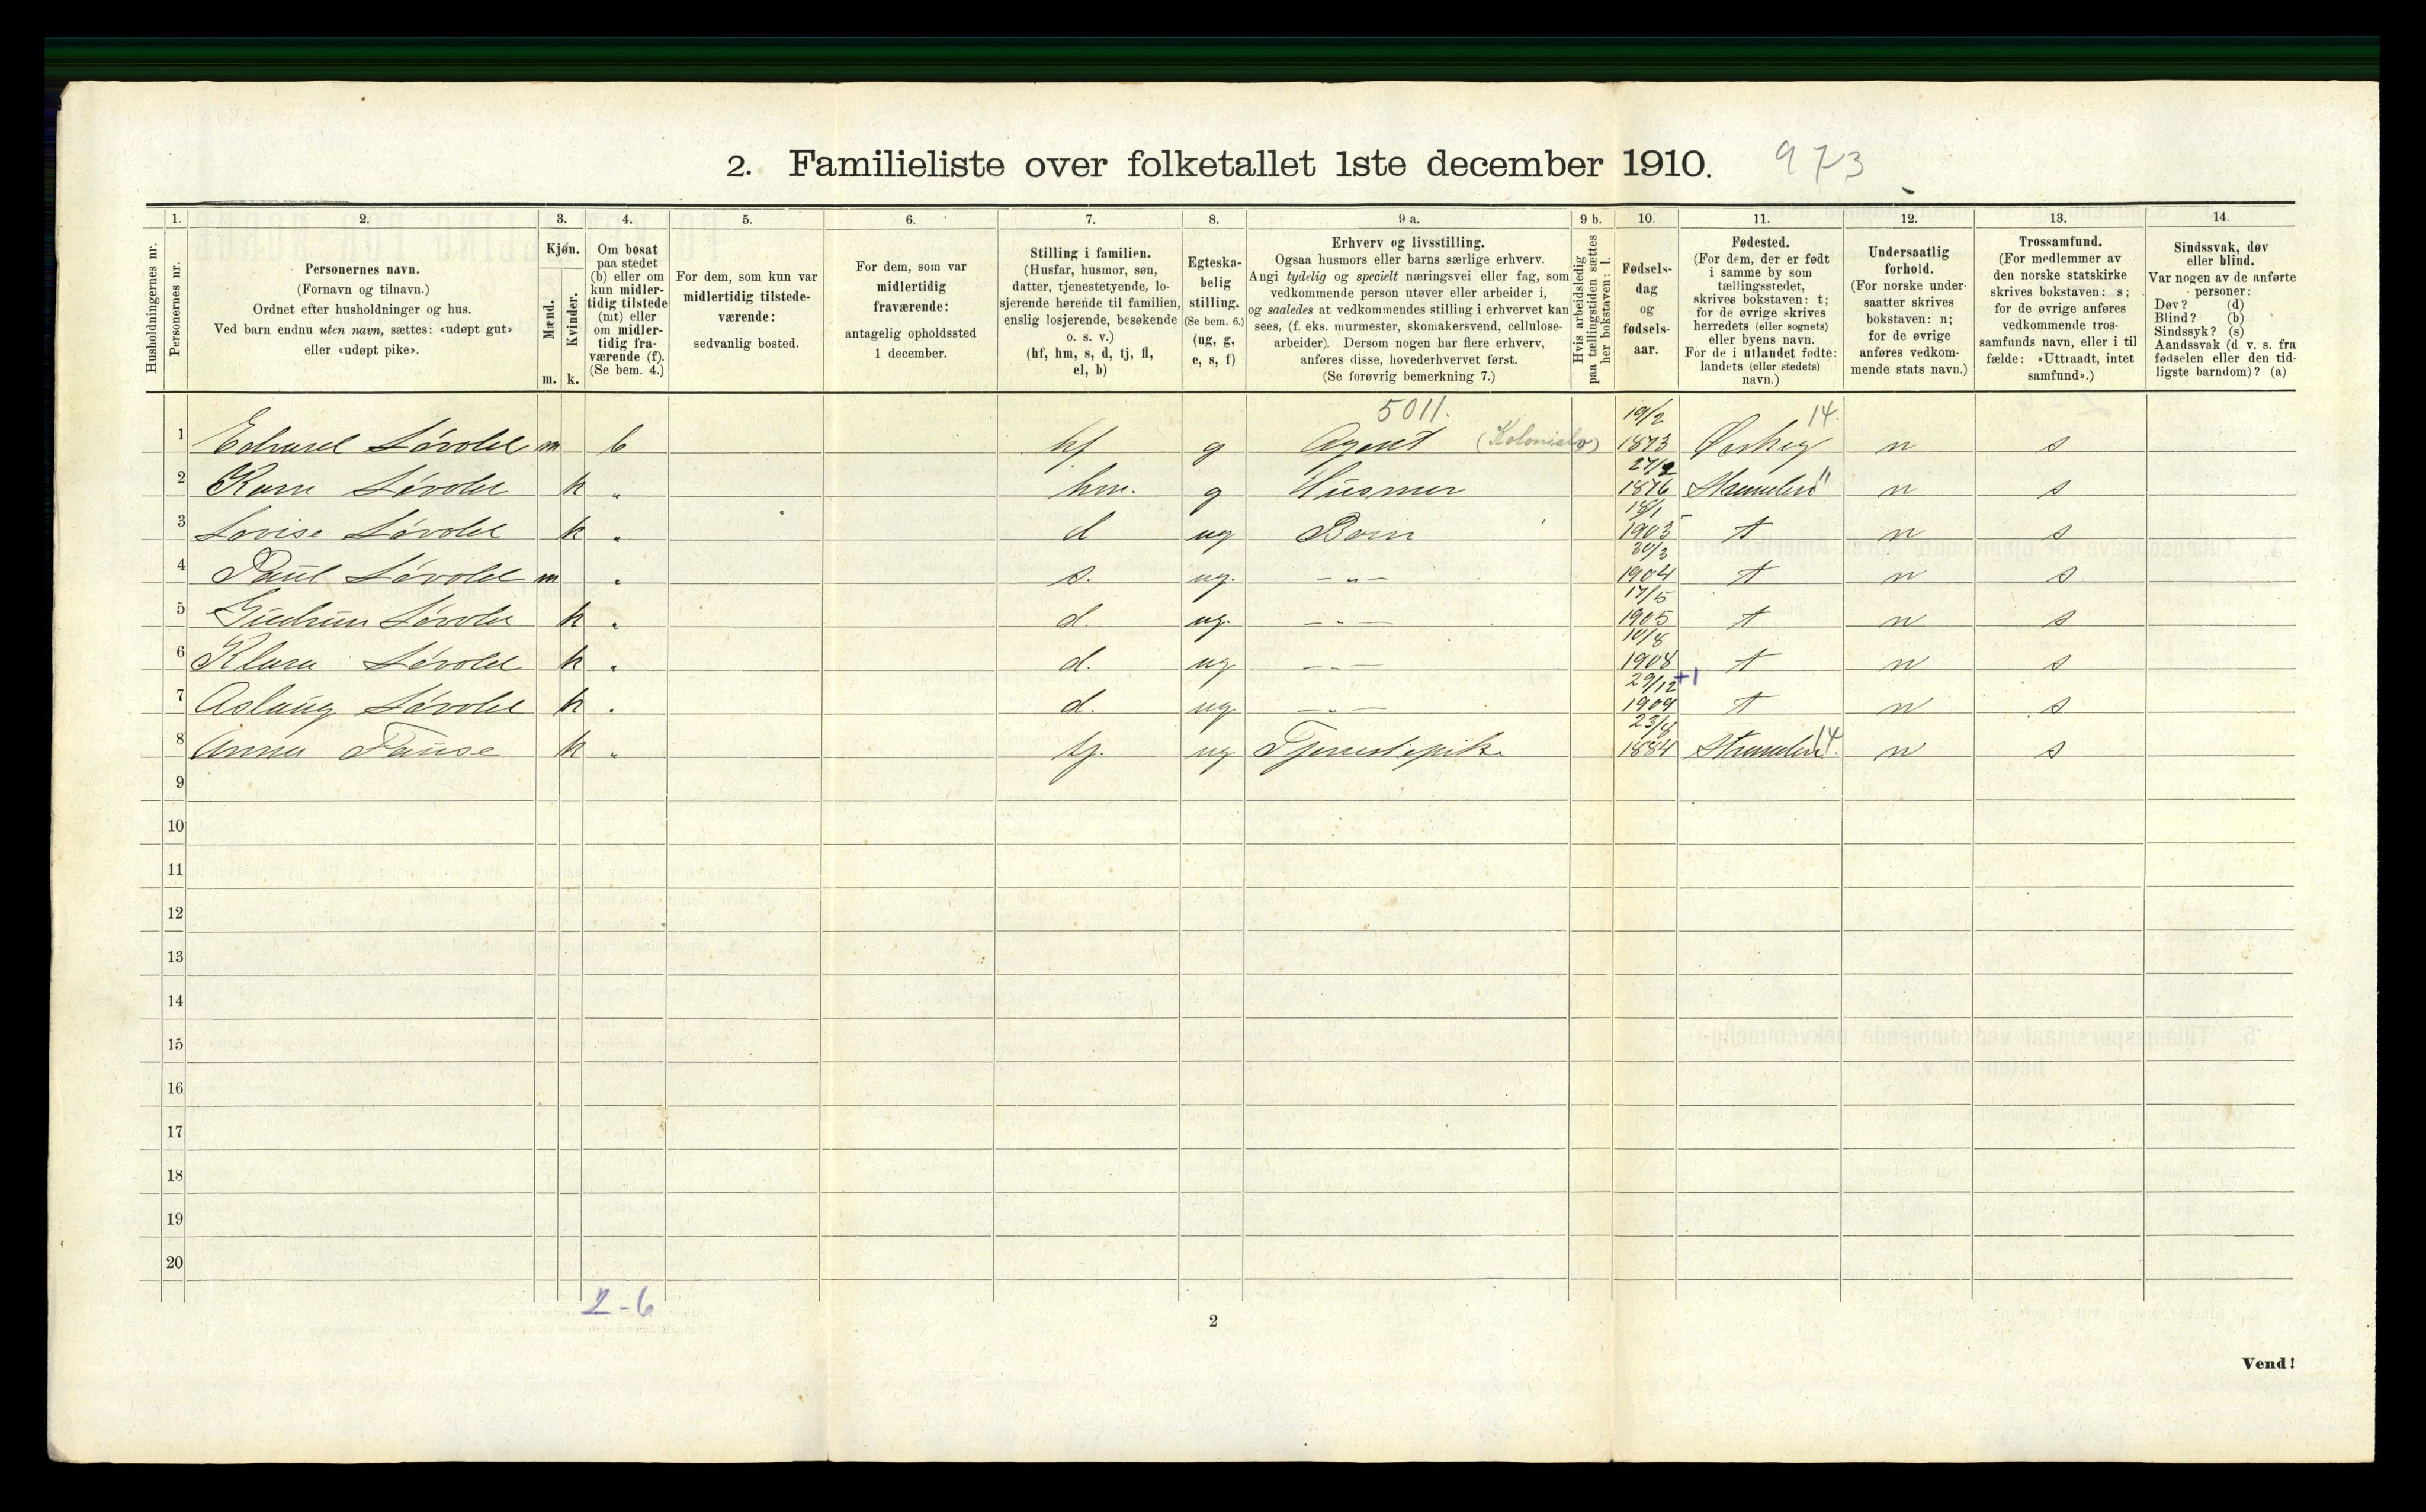 2. Familieliste over folketallet 1ste december 1910. 973
Husholdningernes nr.
1.
Personernes nr.
2.
Personernes navn.
(Fornavn og tilnavn.)
Ordnet efter husholdninger og hus.
Ved barn endnu uten navn, sættes: «udøpt gut»
eller «udøpt pike».
3.
Kjøn.
Mænd.
Kvinder.
m. k.
4.
Om bosat
paa stedet
(b) eller om
kun midler-
tidig tilstede
(mt) eller
om midler-
tidig fra-
værende (f).
(Se bem. 4.)
5.
For dem, som kun var
midlertidig tilstede-
værende:
sedvanlig bosted.
6.
For dem, som var
midlertidig
fraværende:
antagelig opholdssted
1 december.
7.
Stilling i familien.
(Husfar, husmor, søn,
datter, tjenestetyende, lo-
sjerende hørende til familien,
enslig losjerende, besøkende
o. s. v.)
(hf, hm, s, d, tj, fl,
el, b)
8.
Egteska-
belig
stilling.
(Se bem. 6.)
(ug, g,
e, s, f)
9 a.
Erhverv og livsstilling.
Ogsaa husmors eller barns særlige erhverv.
Angi tydelig og specielt næringsvei eller fag, som
vedkommende person utøver eller arbeider i,
og saaledes at vedkommendes stilling i erhvervet kan
sees, (f. eks. murmester, skomakersvend, cellulose-
arbeider). Dersom nogen har flere erhverv,
anføres disse, hovederhvervet først.
(Se forøvrig bemerkning 7.)
9 b.
Hvis arbeidsledig
paa tællingstiden sættes
her bokstaven: l.
10.
Fødsels-
dag
og
fødsels-
aar.
11.
Fødested.
(For dem, der er født
i samme by som
tællingsstedet,
skrives bokstaven: t;
for de øvrige skrives
herredets (eller sognets)
eller byens navn.
For de i utlandet fødte:
landets (eller stedets)
navn.)
12.
Undersaatlig
forhold.
(For norske under-
saatter skrives
bokstaven: n;
for de øvrige
anføres vedkom-
mende stats navn.)
13.
Trossamfund.
(For medlemmer av
den norske statskirke
skrives bokstaven: s;
for de øvrige anføres
vedkommende tros-
samfunds navn, eller i til
fælde: «Uttraadt, intet
samfund».)
14.
Sindssvak, døv
eller blind.
Var nogen av de anførte
personer:
Døv? (d)
Blind? (b)
Sindssyk? (s)
Aandssvak (d v. s. fra
fødselen eller den tid-
ligste barndom)? (a)
5011. 19/2 14.
1 Edvard Løvold m b hf g Agent (Kolonialv) 1873 Ørskog n s
27/2 "
2 Løvold k " hm. g Husmor 1876 n s
18/1
3 Lovise Løvold k " d ug Barn 1903 t n s
30/3
4 Paul Løvold m " s. ug. — " — 1904 t n s
17/5
5 Gudrun Løvold k " d. ug. — " — 1905 t n s
10/8
6 Klara Løvold k " d. ug — " — 1908 t n s
29/12 +1
7 Aslaug Løvold k " d. ug. — " — 1909 t n s
23/8 14
8 Anna k " tj. ug Tjenestepike 1884 n s
9
10
11
12
13
14
15
16
17
18
19
20
2-6
2
Vend!